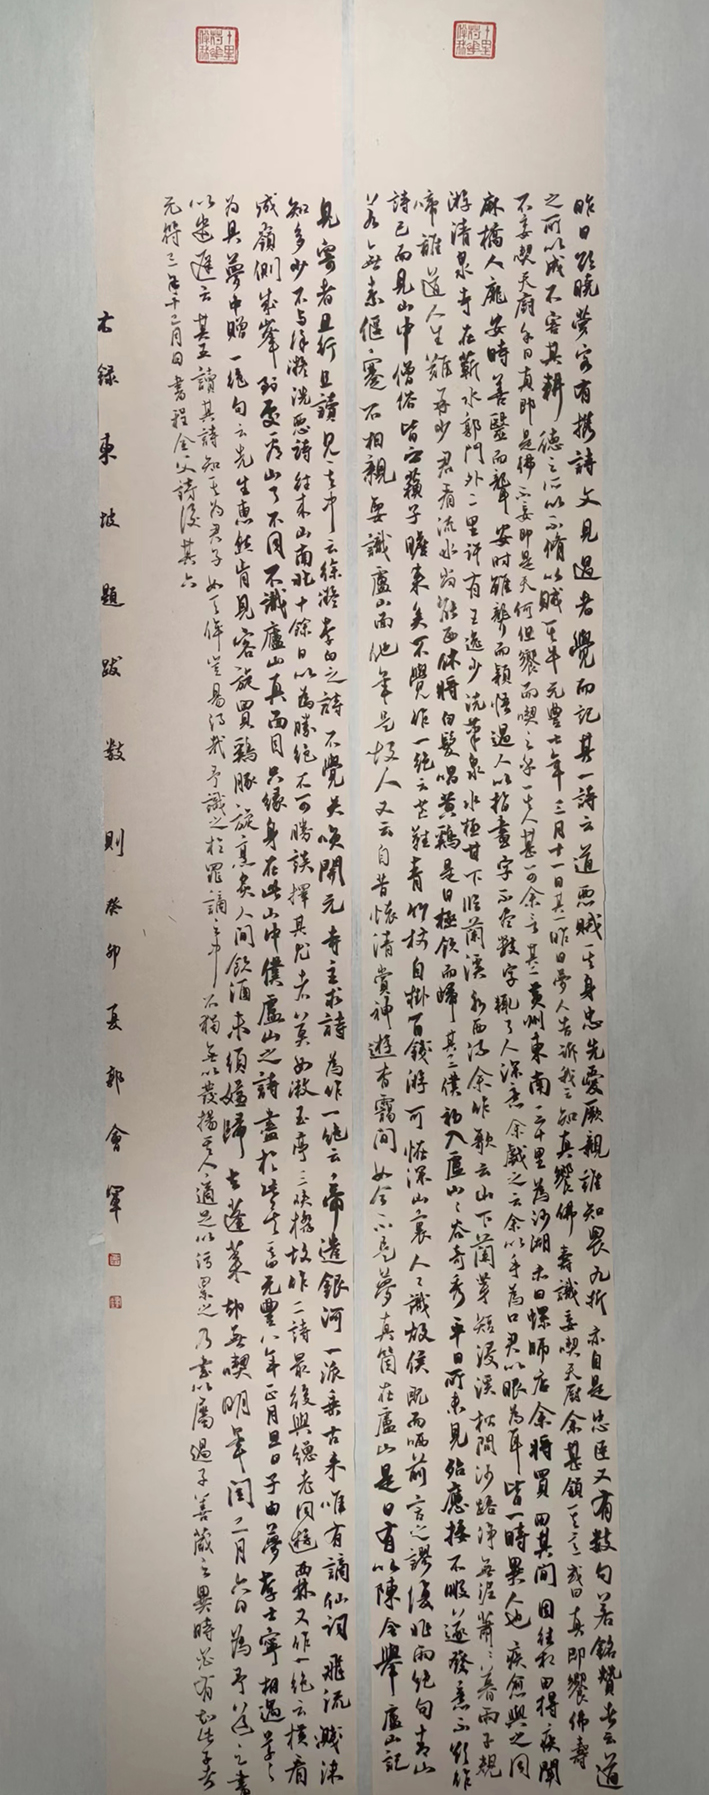 昨日欲曉夢客有攜詩文見過者覺而記其一詩云道惡賊其身忠先愛厥親誰知畏九折亦自是忠臣又有數句若銘贊者云道
之所以成不害其耕德之所以不脩以賊其牛元豐七年三月十一日其一昨日夢人告訴我云知真饗佛壽識妄喫天廚余甚領其意或曰真即饗佛壽
不妄喫天廚余曰真即是佛不妄即是天何但饗而喫之乎其人甚可余言其二黃州東南三十里為沙湖亦曰螺師店余將買田其間因往相田得疾聞
麻橋人龐安時善醫而聾安時雖聾而穎悟過人以指畫字不盡數字輒了人深意余戲之云余以手為口君以眼為耳皆一時異人也疾愈與之同
游清泉寺在蘄水郭門外二里許有王逸少洗筆泉水極甘下臨蘭溪水西流余作歌云山下蘭芽短浸溪松間沙路淨無泥蕭蕭暮雨子規
啼誰道人生難再少君看流水尚能西休將白髮唱黃鷄是日極飲而歸其三僕初入廬山山谷奇秀平日所未見殆應接不暇遂發意不欲作
詩已而見山中僧俗皆云蘇子瞻來矣不覺作一絕云芒鞋青竹杖自掛百錢游可怪深山裏人人識故侯既而哂前言之謬復作兩絕句青山
若無素偃蹇不相親要識廬山面他年是故人又云自昔懷清賞神遊杳靄間如今不是夢真箇在廬山是日有以陳令舉廬山記
見寄者且行且讀見其中云徐凝李白之詩不覺失笑開元寺主求詩為作一絕云帝遣銀河一派垂古來唯有謫仙詞飛流濺沫
知多少不與徐凝洗惡詩往來山南北十餘日以為勝絕不可勝談擇其尤者莫如漱玉亭三峽橋故作二詩最後與總老同遊西林又作一絕云橫看
成嶺側成峯到處看山了不同不識廬山真面目只緣身在此山中僕廬山之詩盡於此矣其四元豐八年正月旦日子由夢李士寧相過草草
為具夢中贈一絕句云先生惠然肯見客旋買鷄豚旋烹炙人間飲酒未須嫌歸去蓬萊卻無喫明年閏二月六日為予道之書
以遺遲云其五讀其詩知其為君子如天侔豈易得哉予識之於罪謫之中不獨無以發揚其人適足以污累之乃書以屬過子善藏之異時必有知此子者
元符三年十二月日書程全父詩後其六
右錄東坡題跋數則癸卯夏郭會軍